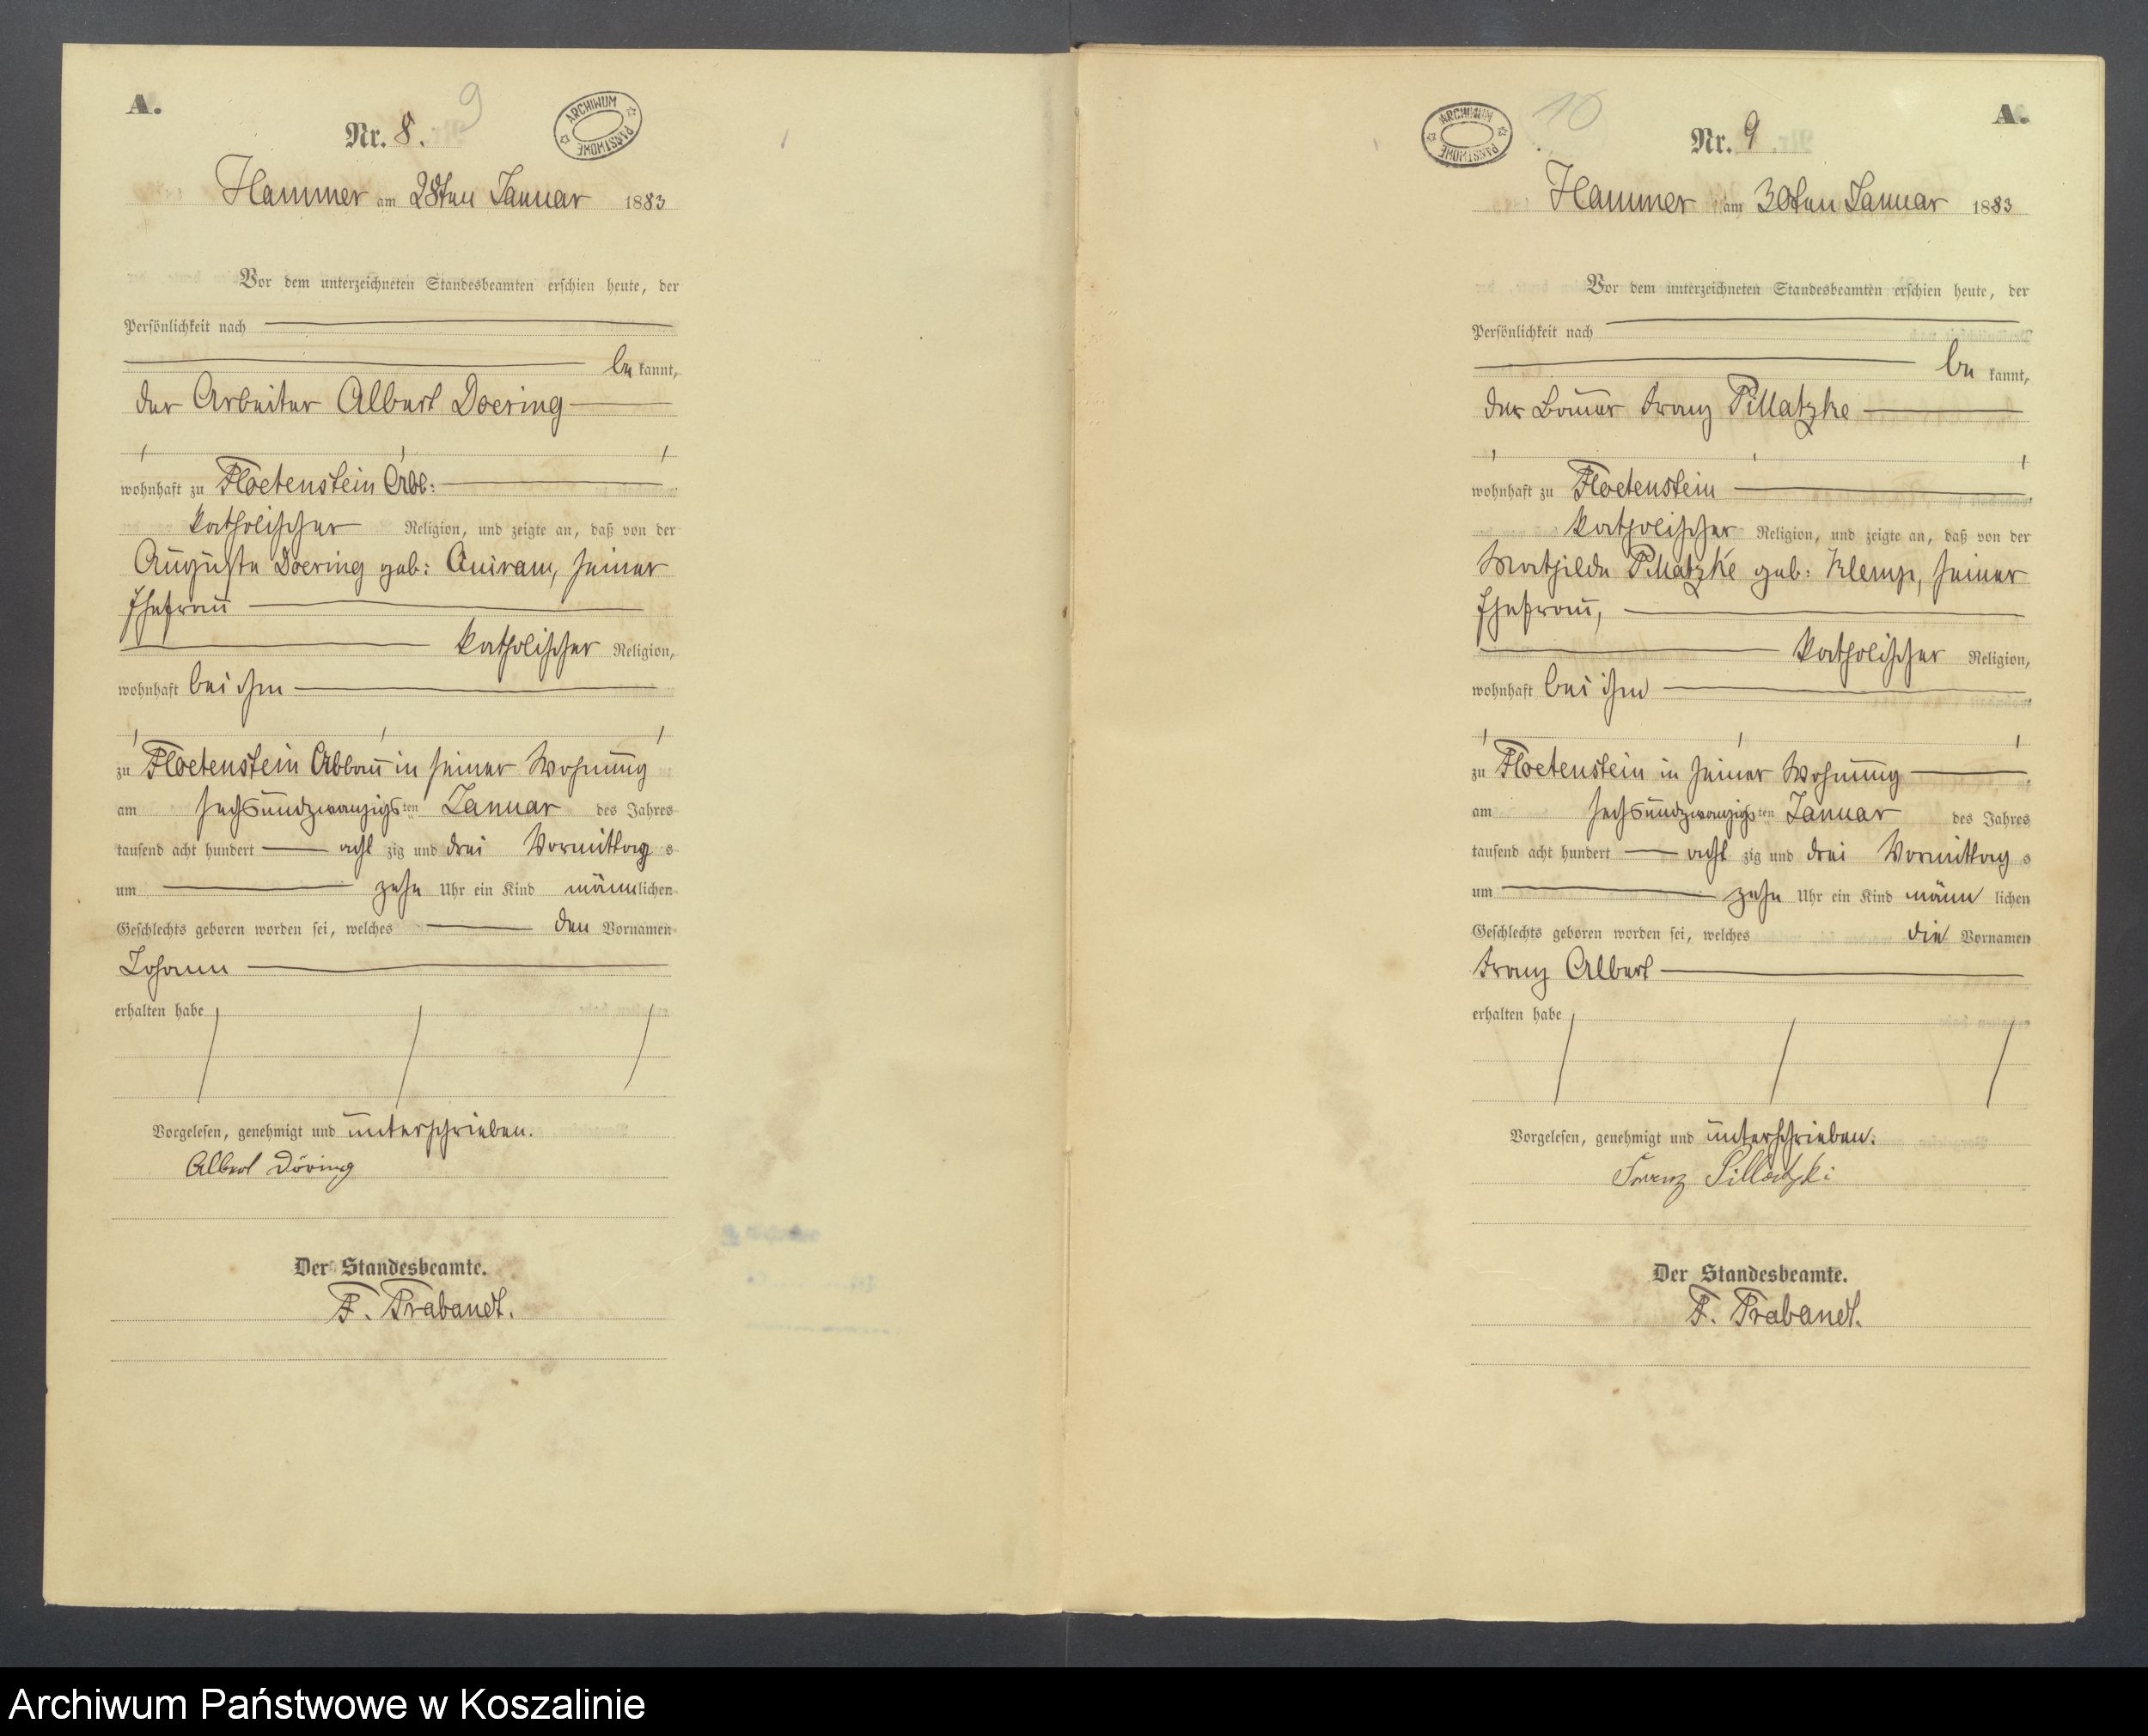 A.
Nr. 8.
9
ARCHIWUM PAŃSTWOWE
Hammer am 28ten Januar 1883
Vor dem unterzeichneten Standesbeamten erschien heute, der
Persönlichkeit nach
be kannt,
der Arbeiter Albert Doering
wohnhaft zu Floetenstein Abb:
katholischer Religion, und zeigte an, daß von der
Auguste Doering geb: seiner
Ehefrau
katholischer Religion,
wohnhaft bei ihm
zu Floetenstein Abbau in seiner Wohnung
am sechsundzwanzigsten Januar des Jahres
tausend acht hundert acht zig und drei Vormittags
um zehn Uhr ein Kind männlichen
Geschlechts geboren worden sei, welches den Vornamen
Johann
erhalten habe
Vorgelesen, genehmigt und unterschrieben.
Albert Döring
Der Standesbeamte.
F. Trabandt.
A.
Nr. 9
10
ARCHIWUM PAŃSTWOWE
Hammer am 30ten Januar 1883
Vor dem unterzeichneten Standesbeamten erschien heute, der
Persönlichkeit nach
be kannt,
der Bauer Franz Pillatzke
wohnhaft zu Floetenstein
katholischer Religion, und zeigte an, daß von der
Mathilde Pillatzke geb: Klemp, seiner
Ehefrau,
katholischer Religion,
wohnhaft bei ihm
zu Floetenstein in seiner Wohnung
am sechsundzwanzigsten Januar des Jahres
tausend acht hundert acht zig und drei Vormittags
um zehn Uhr ein Kind männ lichen
Geschlechts geboren worden sei, welches die Vornamen
Franz Albert
erhalten habe
Vorgelesen, genehmigt und unterschrieben.
Franz Pillatzki
Der Standesbeamte.
F. Trabandt.
Archiwum Państwowe w Koszalinie